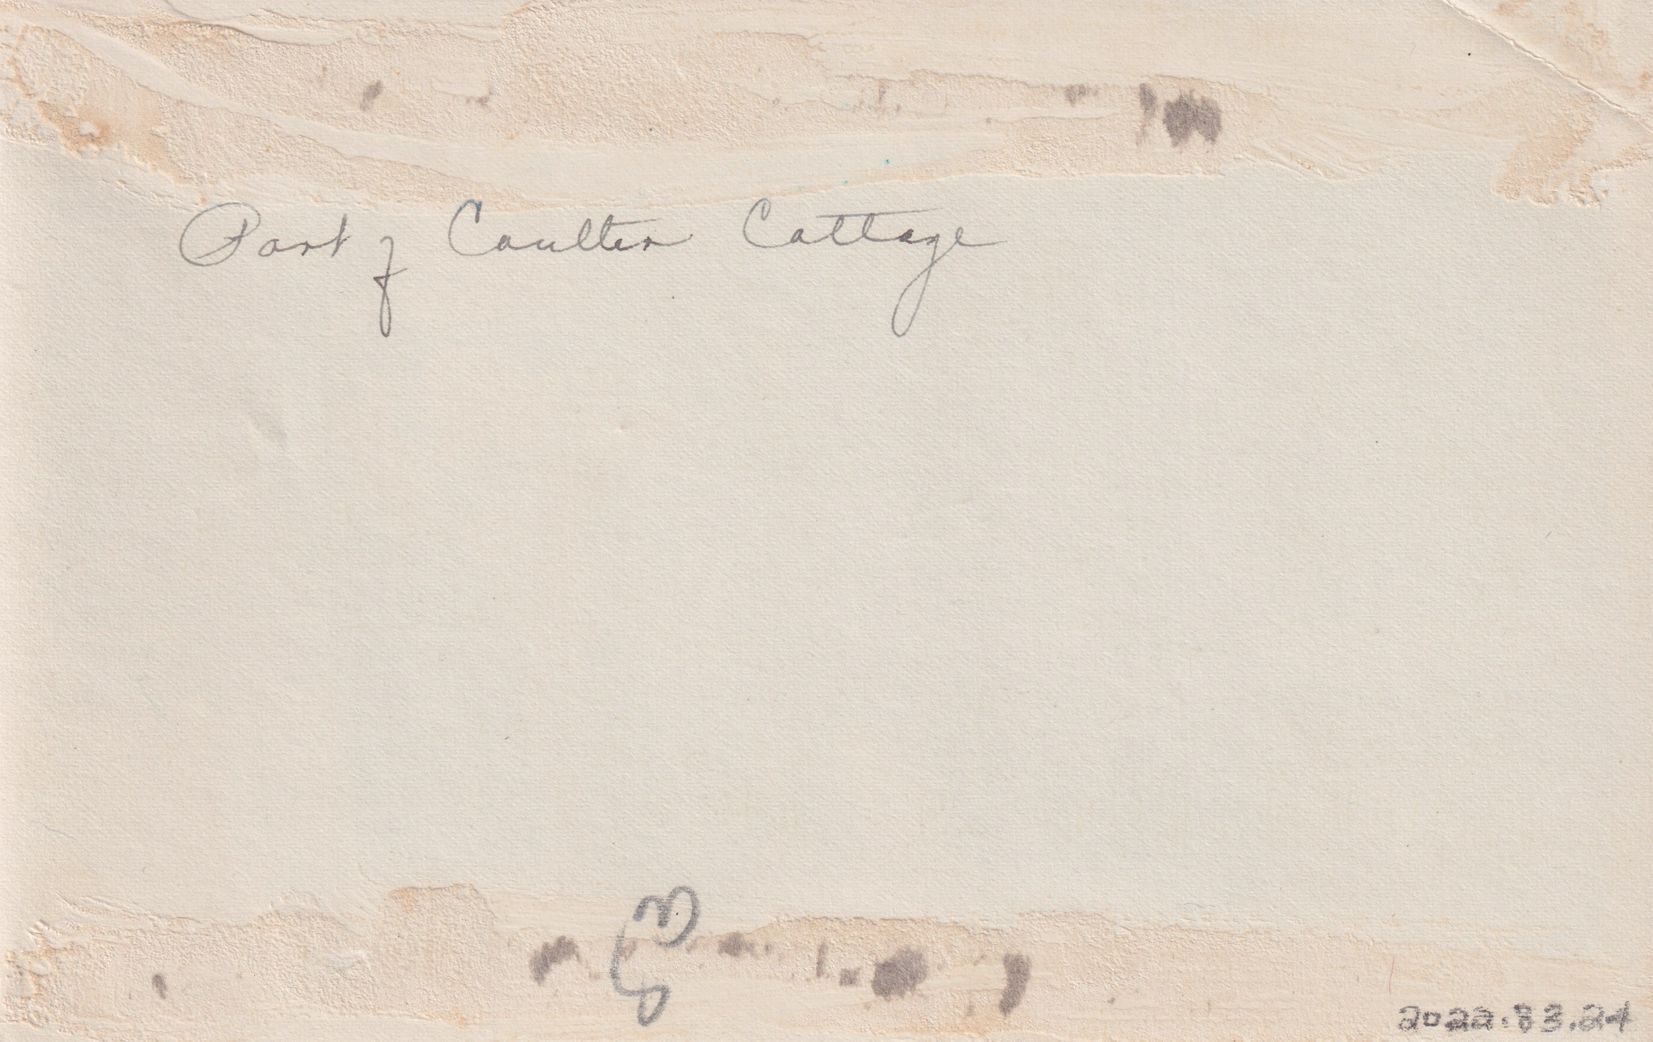 Part of Coulter Cottage
2022.83.24